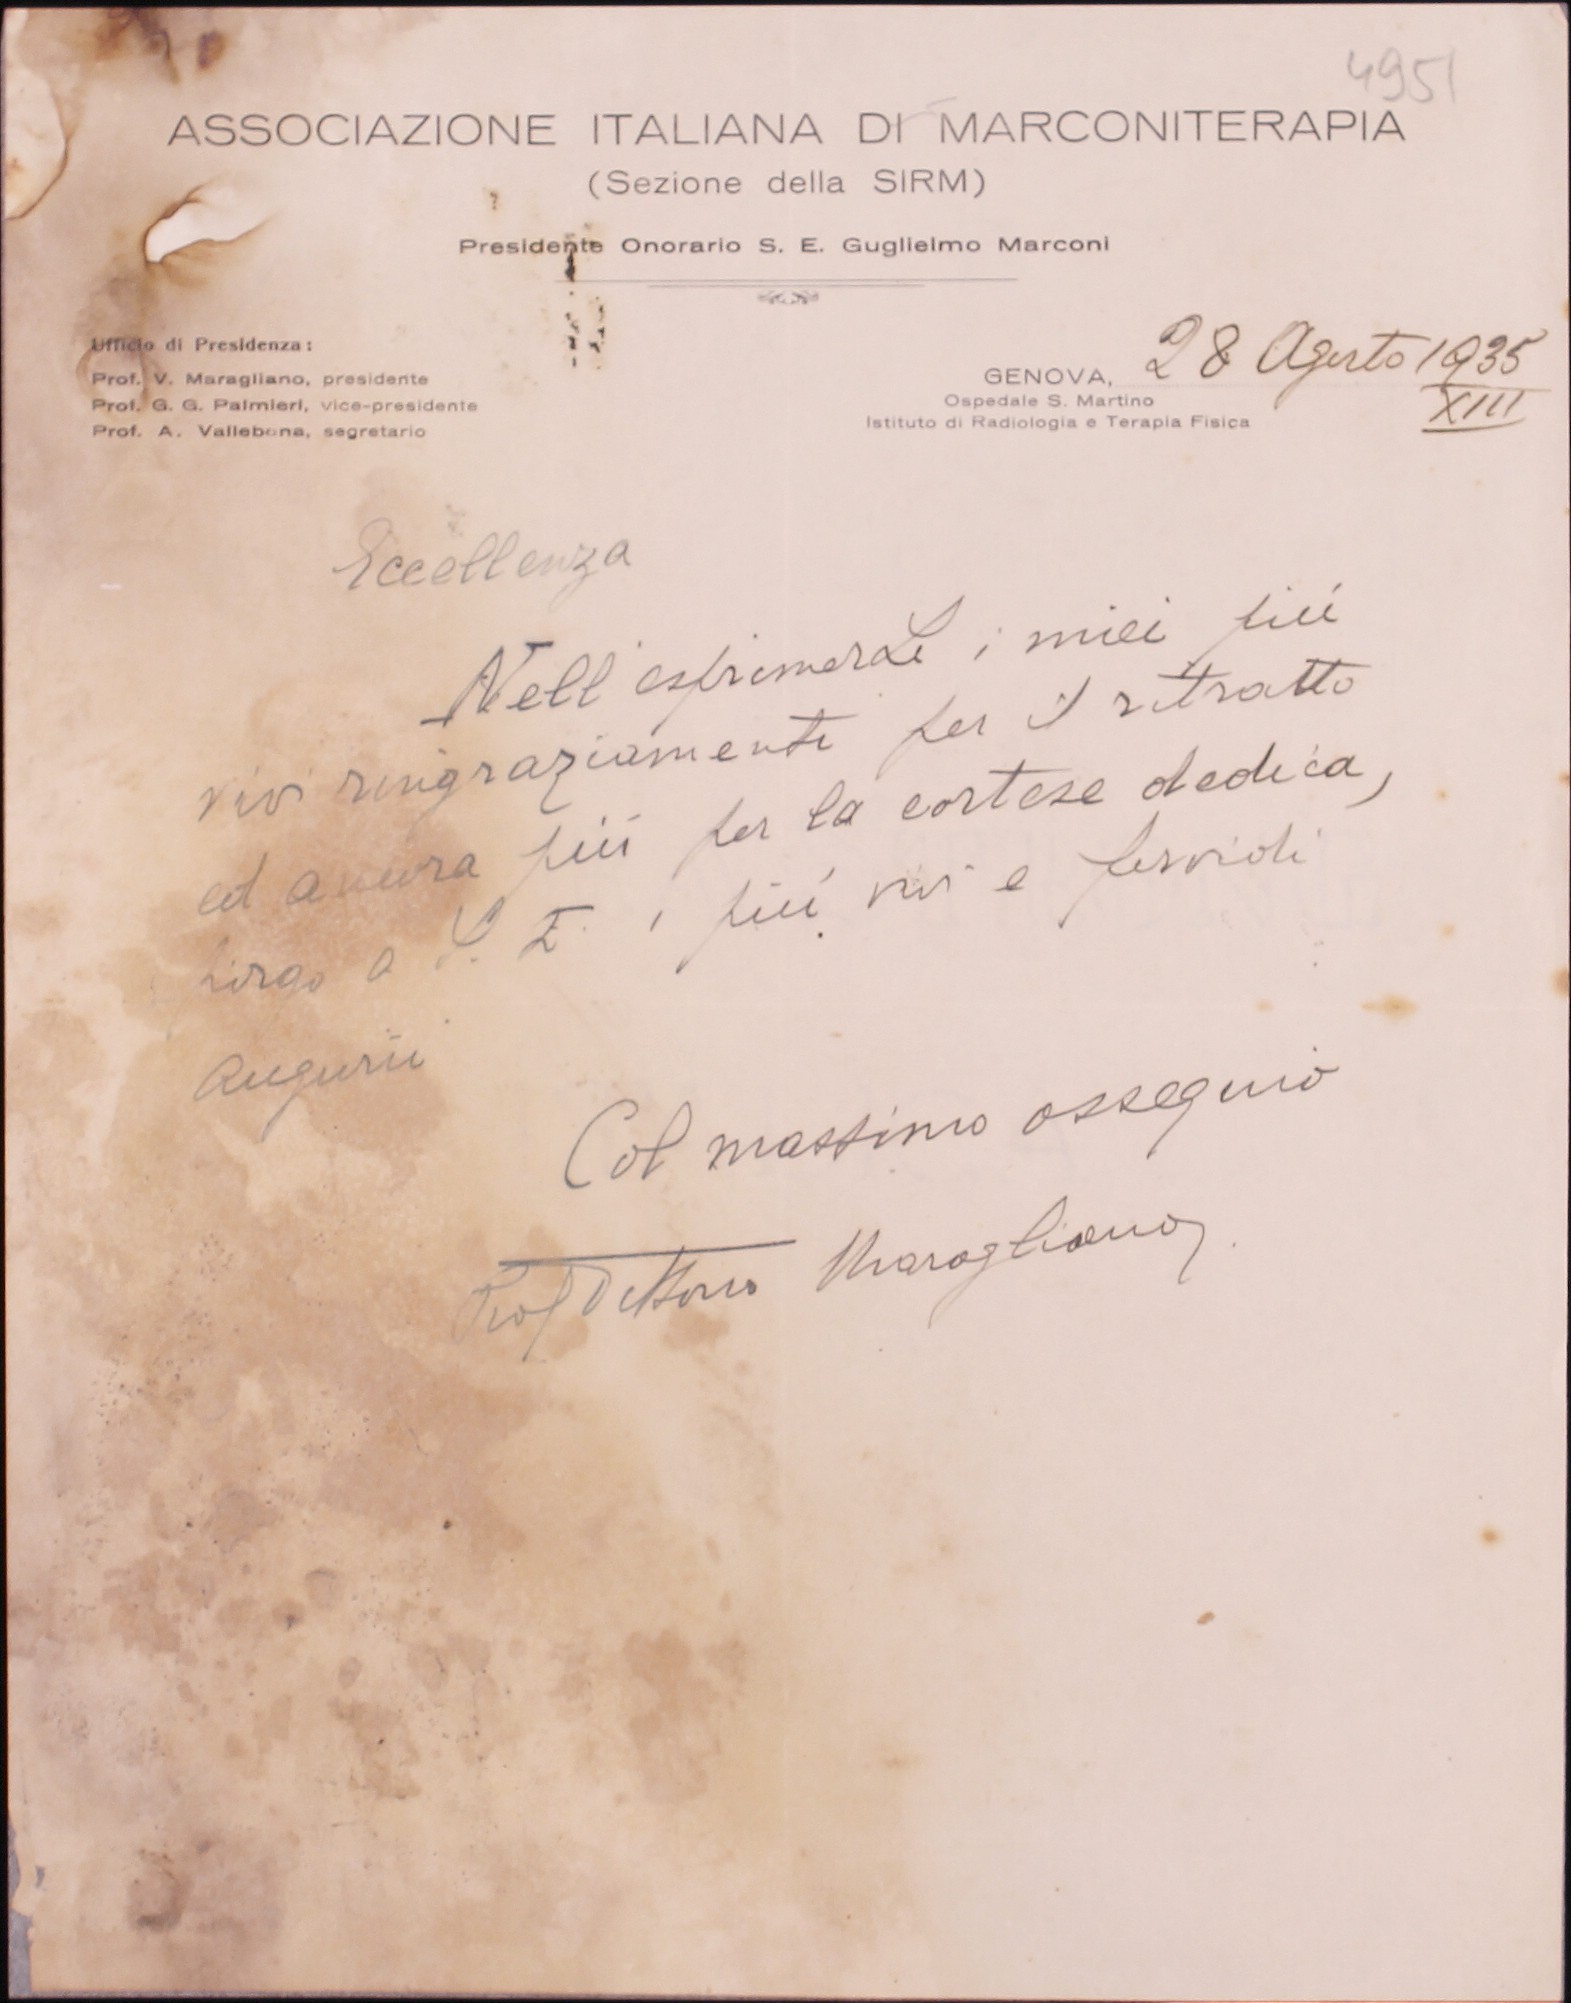 4951
ASSOCIAZIONE ITALIANA DI MARCONITERAPIA
(Sezione della SIRM)
Presidente Onorario S. E. Guglielmo Marconi
Ufficio di Presidenza:
Prof. V. Maragliano, presidente
Prof. G. G. Palmieri, vice-presidente
Prof. A. Vallebona, segretario
GENOVA, 28 Agosto 1935
XIII
Ospedale S. Martino
Istituto di Radiologia e Terapia Fisica
Eccellenza
Nell'esprimerLe i miei più
vivi ringraziamenti per il ritratto
ed ancora più per la cortese dedica,
porgo a S. E. i più vivi e fervidi
augurii
Col massimo ossequio
Prof Vittorio Maragliano